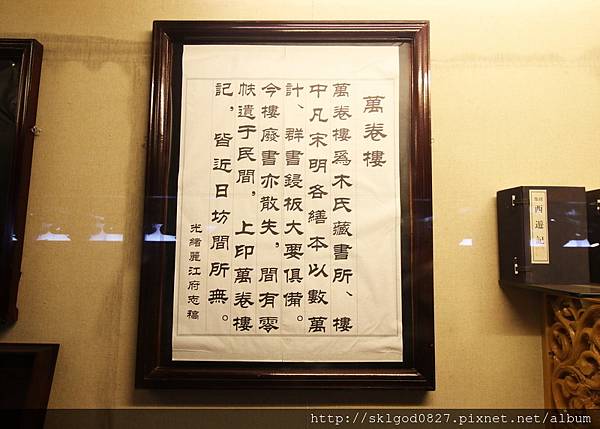 萬卷樓
萬卷樓爲木氏藏書所、樓
中凡宋明各繕本以數萬
計、群書鋟板大要俱備。
今樓廢書亦散失，間有零
帙遺于民間，上印萬卷樓
記，皆近日坊間所無。
光緒麗江府志稿
西遊記
http://sklgod0827.pixnet.net/album